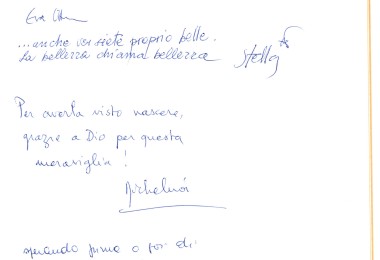 Eva
...anche voi siete proprio belle.
La bellezza chiama bellezza
Stella
Per averla visto nascere,
grazie a Dio per questa
meraviglia!
sperando prima o poi di